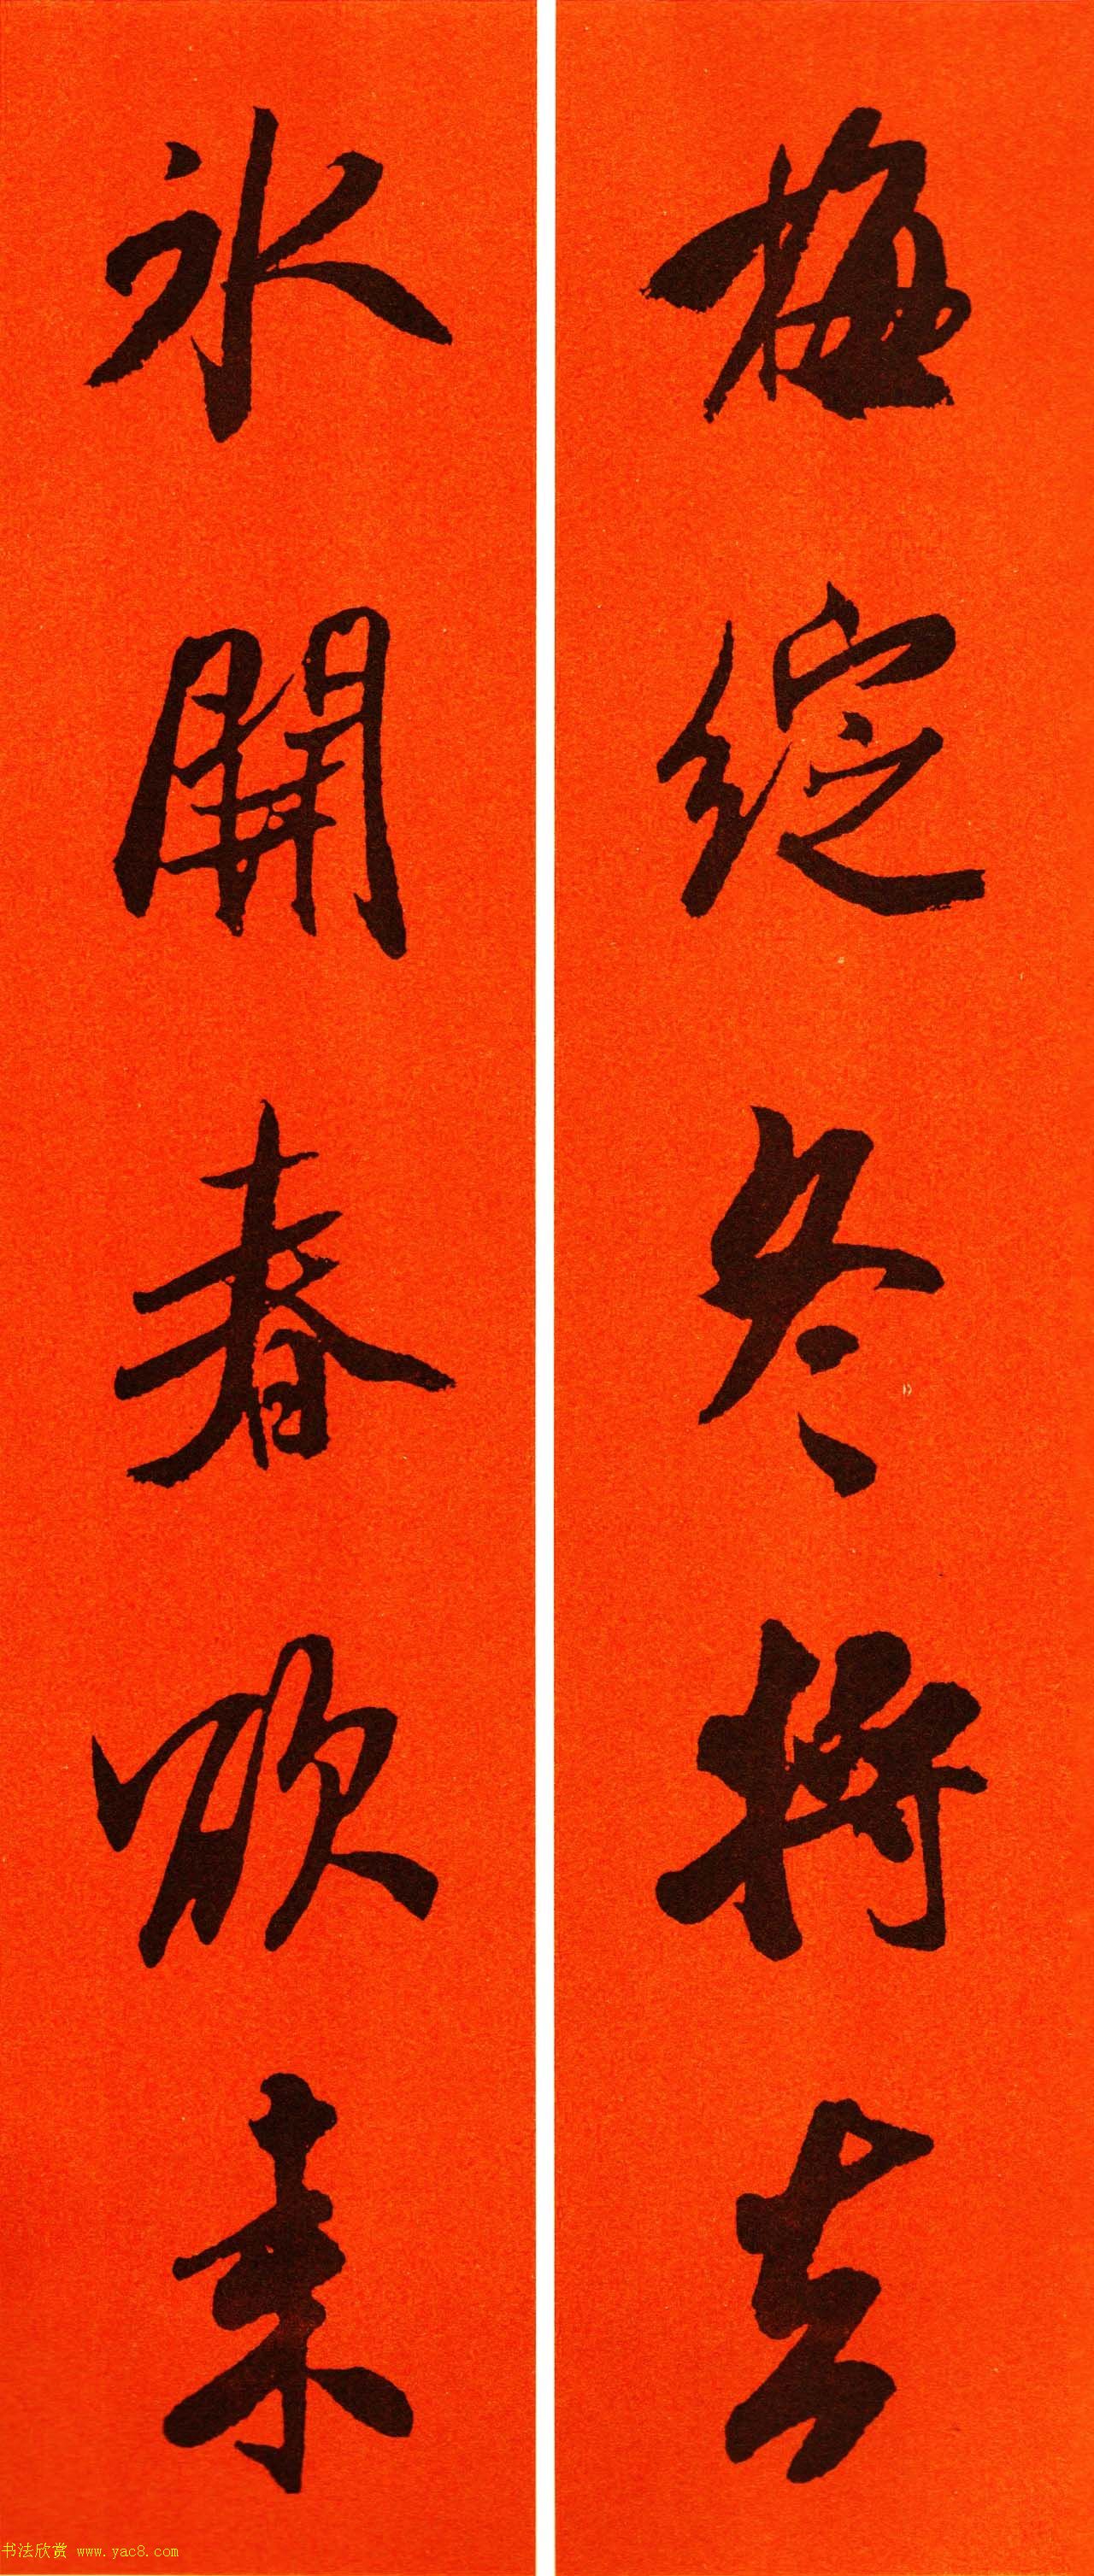 梅綻冬將去
氷開春欲来
书法欣赏 www.yac8.com